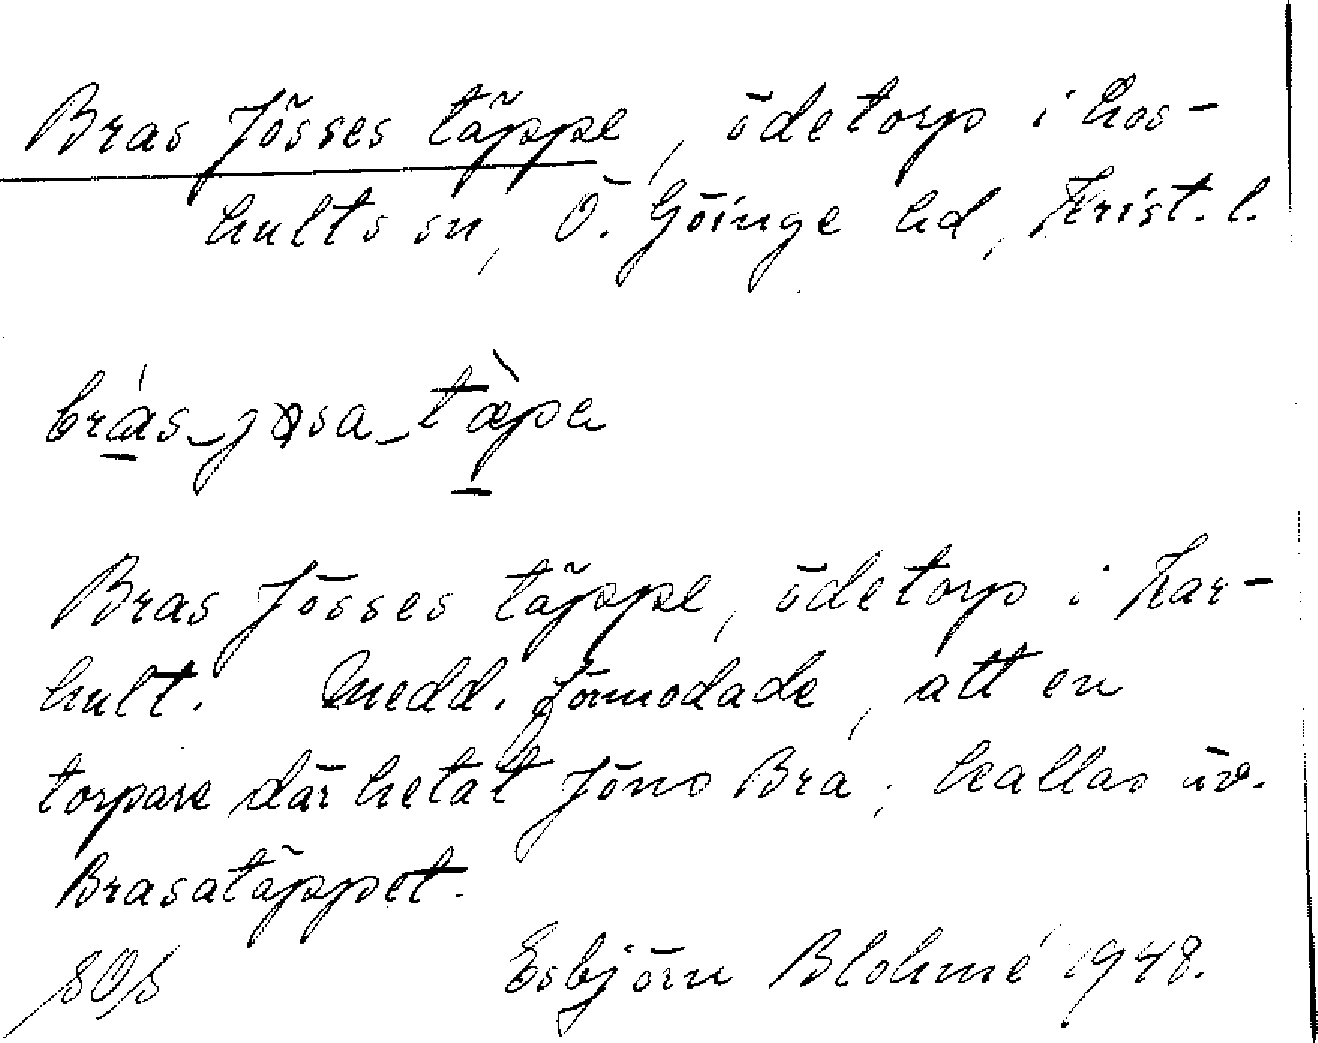 Bras Jösses täppe, ödetorp i Hos-
hults sn, Ö. Göinge hd, Krist. l.
brás_jøsa_tæ̀pa
Bras Jösses täppe, ödetorp i Har-
hult. Medd. förmodade, att en
torpare där hetat Jöns Bra; kallas äv.
Brasatäppet.
Esbjörn Blohmé 1948.